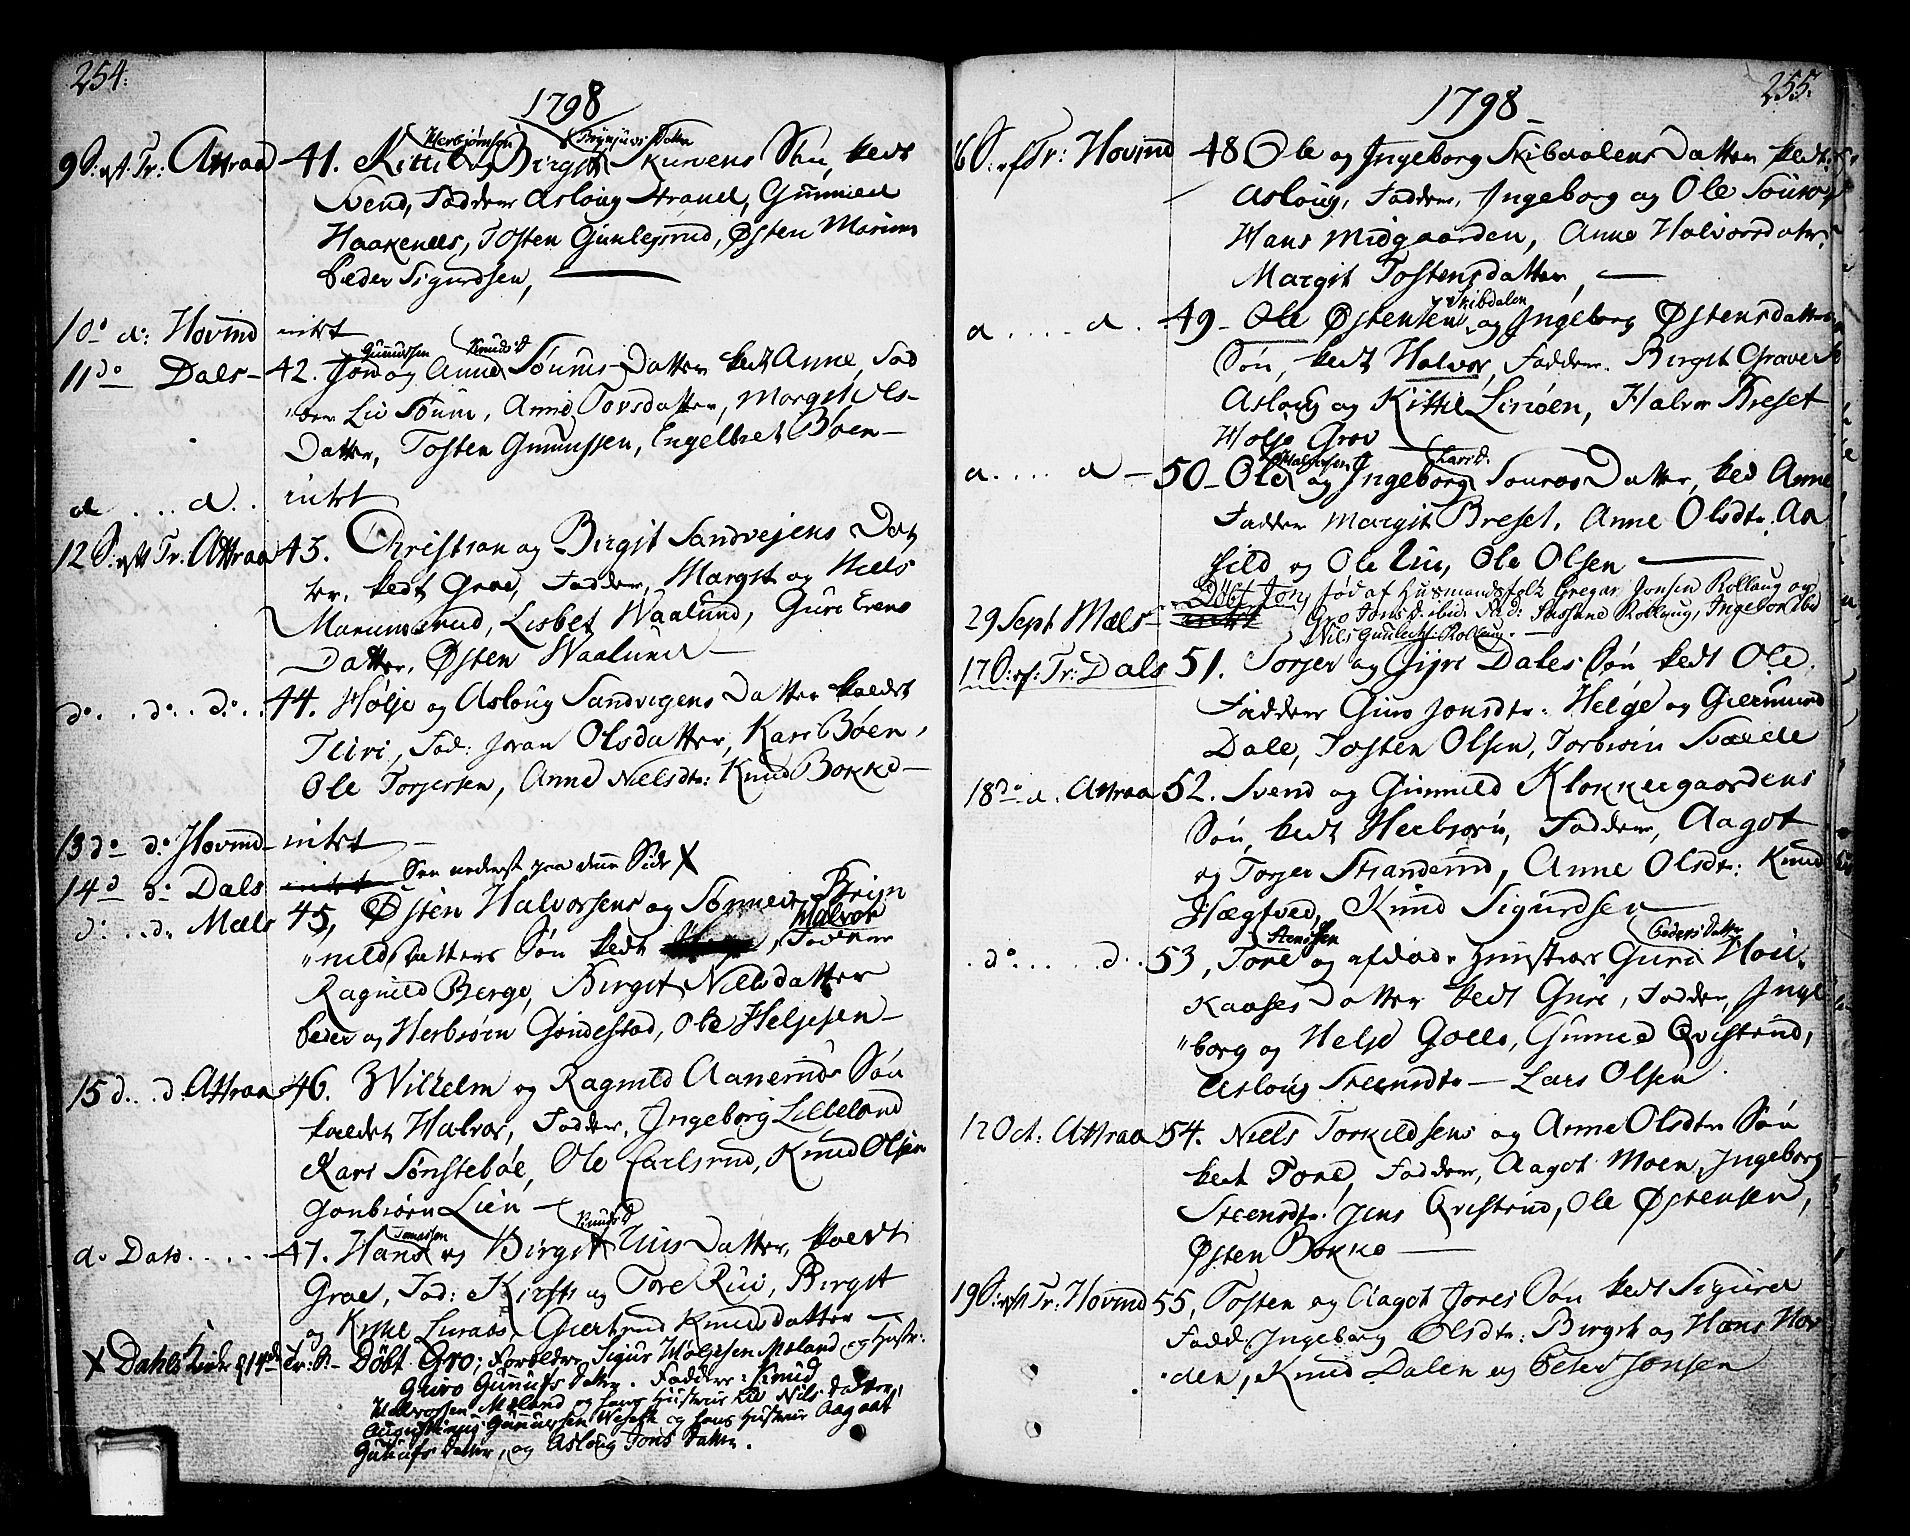 254.
1798
9 S: eft. Tr: Attraa 41. Kittil Herbjørnsen og Birgit Brynjuvs Datter Skurvens Søn, kedt
Svend, Faddere Asloug Strand, Gunnild
Haakenæs, Tosten Gunlejsrud, Østen Marum
Peder Sigurdsen,
10de d: Hovind intet
11 do Dals - 42. Jon Gunnufsen og Anne Knudsd Søums Datter kedt Anne, Fad
dere Liv Søum, Anne Torsdatter, Margit Ols-
Datter, Tosten Gunnufsen, Engelbret Bøen -
d . . . d. . intet
12 S: eft Tr: Attraa 43. Christian og Birgit Sandvejens Dat
ter, kedt Groe, Faddere, Margit og Niels
Marumsrud, Lisbet Waalund, Guri Evens
Datter, Østen Waalund -
do. . do. . do. . 44. Hølje og Asloug Sandvigens Datter kaldet
Turi, Fad: Joran Olsdatter, Kari Bøen,
Ole Torjersen, Anne Nielsdtr: Knud Bokke -
13 do do Hovind - intet -
14 d do Dals intet See nederst paa denne Side X
d: . . d: Mæls 45, Østen Halvorsens og Sønneve Bryn
"nilds Datters Søn kedt Halvor, Faddere
Ragnild Berge, Birgit Nielsdatter
Peder og Herbiørn Gøndestad, Ole Heljesen -
15 d. . d. Attraa 46. Wilhelm og Ragnild Aaneruds Søn
kaldet Halvor, Faddere, Ingeborg Lilleland
Kari Sønstebøe, Ole Carlsrud, Knud Olsen
Gonbiørn Lien -
d. Dato . . . . . 47. Hans Tomassen og Birgit Knudsd Uus Datter, kaldt
Groe, Fad: Kirsti og Tore Rui, Birgit
og Luraas, Giertrud Knudsdatter -
X Dahls Kirke d 14de Tr: S: - Døbt Gro; Forældre Sigur Høljesen Moland og Hustr:
Guro Gunnufs Datter. Faddere: Knud
Halvorsen Moland og hans Hustrue Liv Nils Datter,
Gunnufsen og hans Hustrue Aagaat
Gunufs Datter, og Asloug Jons Datter.
255.
1798
16 S: eft Tr: Hovind 48 Ole og Ingeborg Skibdalens Datter kedt
Asloug, Faddere, Ingeborg og Ole Souroy
Hans Midgaarden, Anne Halvorsdatr:
Margit Tostensdatter, -
d . . . . d . . 49 - Ole Østensen Skibdalen og Ingeborg Østensdatters
Søn, kedt Halvor, Faddere. Birgit Grave
Asloug og Kittil Linøen, Halvor Breset
Holje Grov -
d. . . . d - 50 - Ole Halvorsen og Ingeborg Larsd. Souroes Datter, ked Anne
Faddere Margit Breset, Anne Olsdtr. Aa
sild og Ole Lii, Ole Olsen -
29 Sept Mæls - intet Døbt Jon, fød af Husmandsfolk Gregar Jonsen Rollaug og
Gro Jons D:
Nils Gunlechs. Rollaug. -
17 S: ef: Tr: Dals 51. Torjer og Gyri Dales Søn kedt Ole,
Faddere Guro Jonsdtr: Helge og Giermund
Dale, Tosten Olsen, Torbiørn Svalde
18 do d. Attraa 52. Svend og Gunnild Klokkergaardens
Søn, kedt Herbjørn, Faddere, Aagot
og Torjer Strandrud, Anne Olsdtr: Knud
Hægtved, Knud Sigurdsen
. do. . . . d. . 53, Tore Arnesen og afdøde Hustrues Guro Peders Datter Hou-
Kaases Datter kedt Guri, Faddere, Inge
"borg og Helje Goells, Gunnild Qvistrud,
Asloug Steensdtr - Lars Olsen
12 Oct: Attraa 54. Niels Torkildsens og Anne Olsdtr Søn
kedt Tore, Faddere, Aagot Moen, Ingeborg
Steensdtr: Jens Qvistrud, Ole Østensen,
Østen Bokke -
19 S: eft Tr: Hovind 55, Tosten og Aagot Jores Søn kedt Sigurd
Fadd: Ingeborg Olsdtr: Birgit og Hans Hov
"den, Knud Dalen og Peter Jonsen